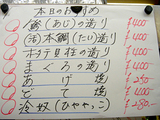 本日のおすすめ
鯵(あじ)の造り ¥400
本鯛(たい)造り ¥400
ホタテ貝柱の造り ¥400
まぐろの造り ¥400
あげ焼 ¥250
どて焼 ¥400
冷奴(ひややっこ) ¥250